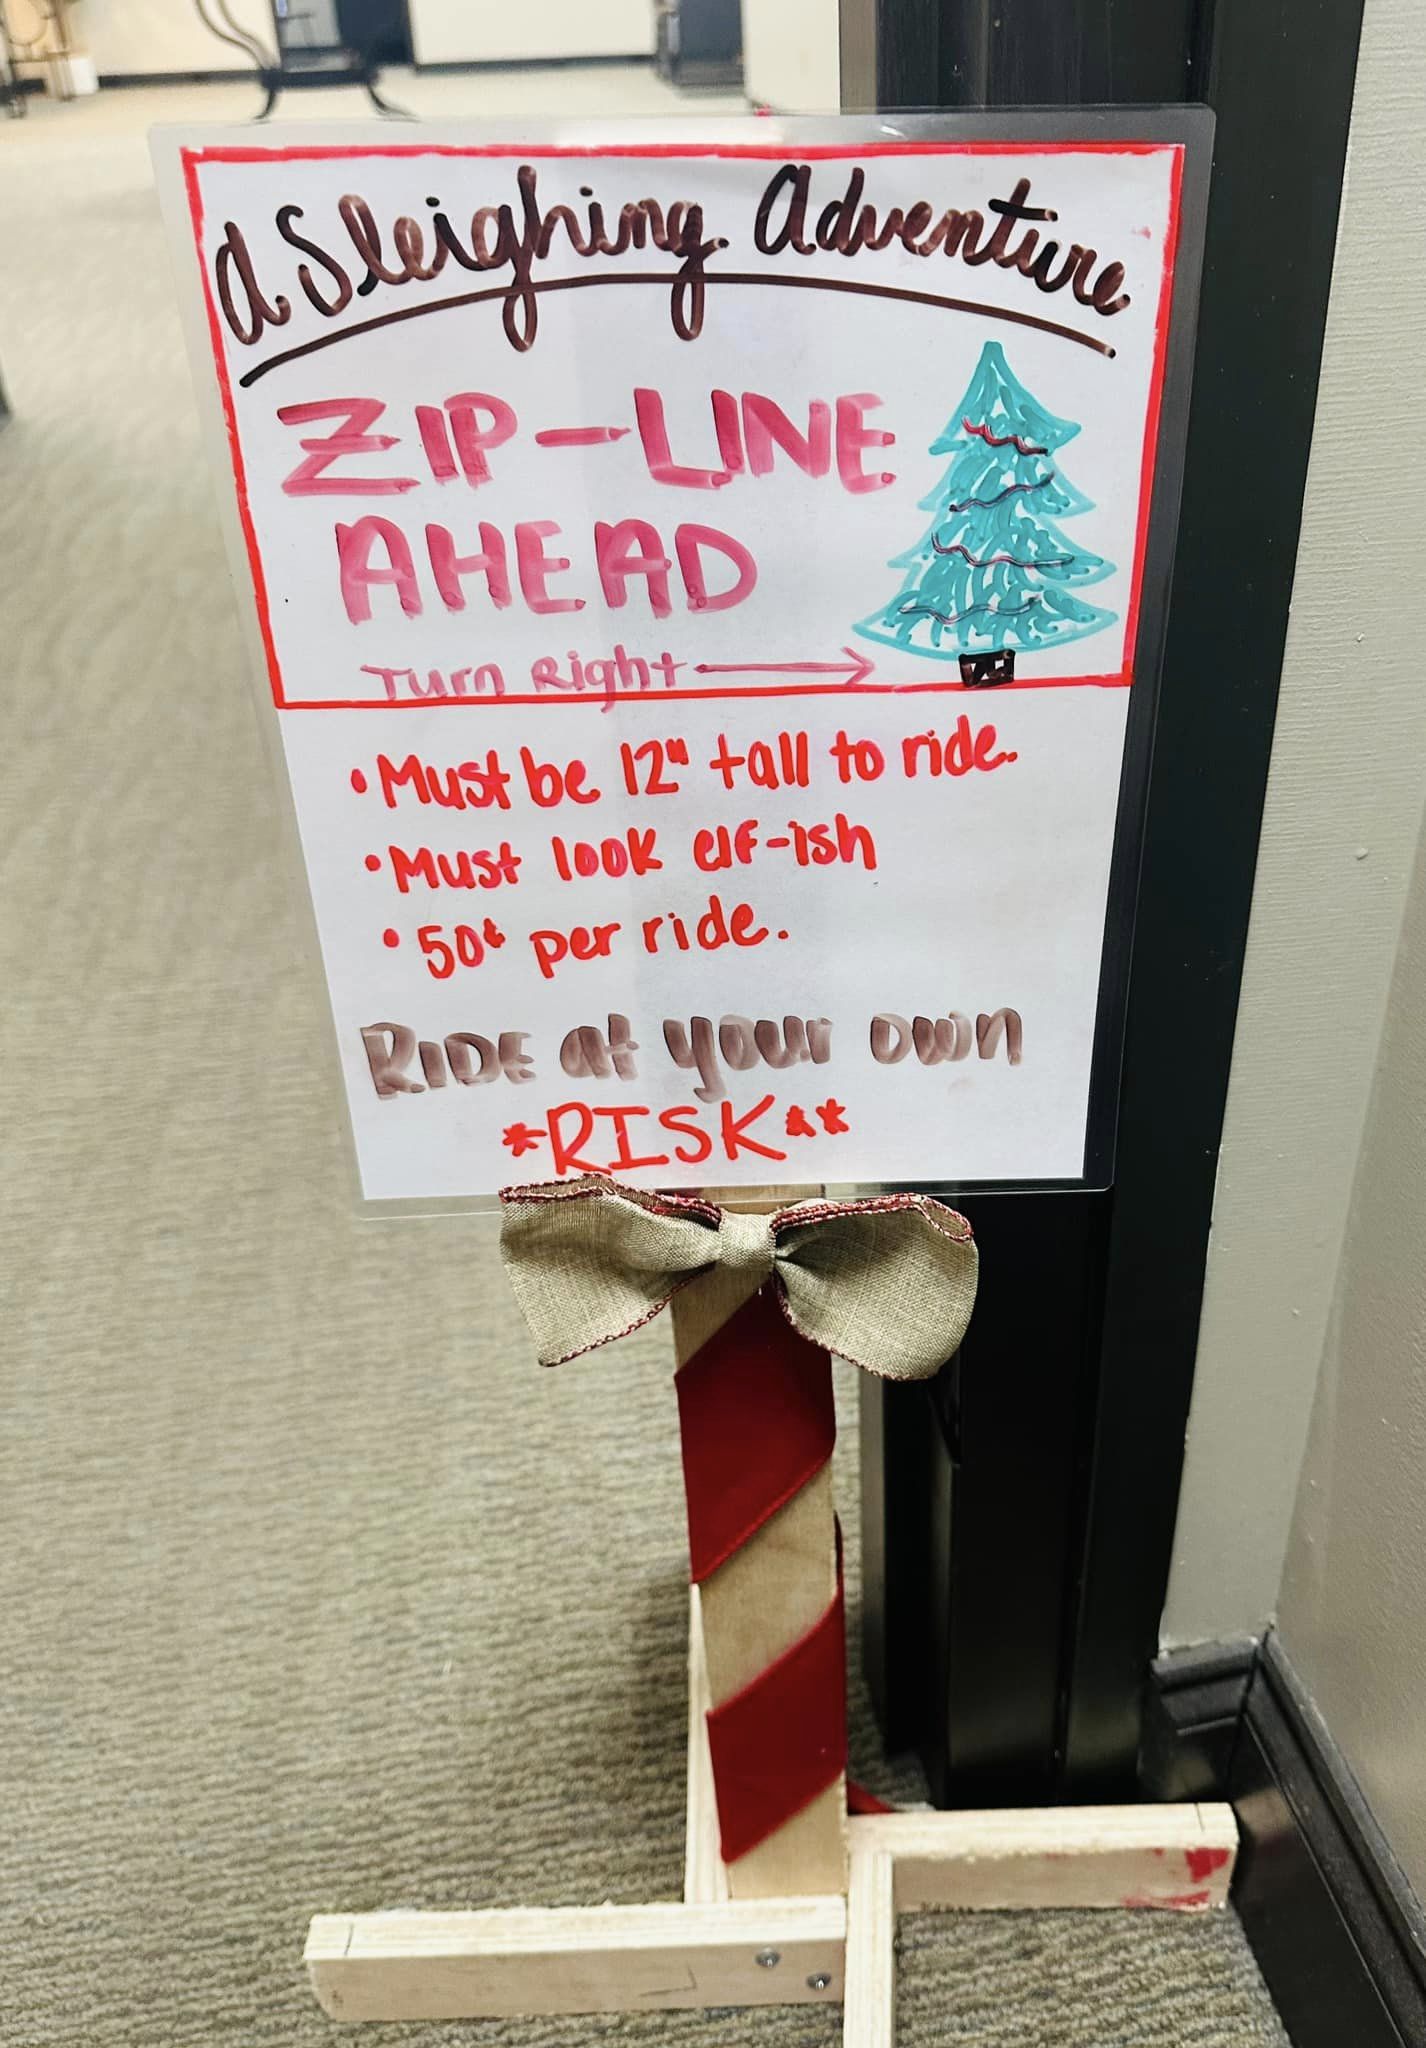 A Sleighing Adventure
ZIP-LINE
AHEAD
Turn Right →
• Must be 12" tall to ride.
• Must look elf-ish
• 50¢ per ride.
RIDE at your own
*RISK**